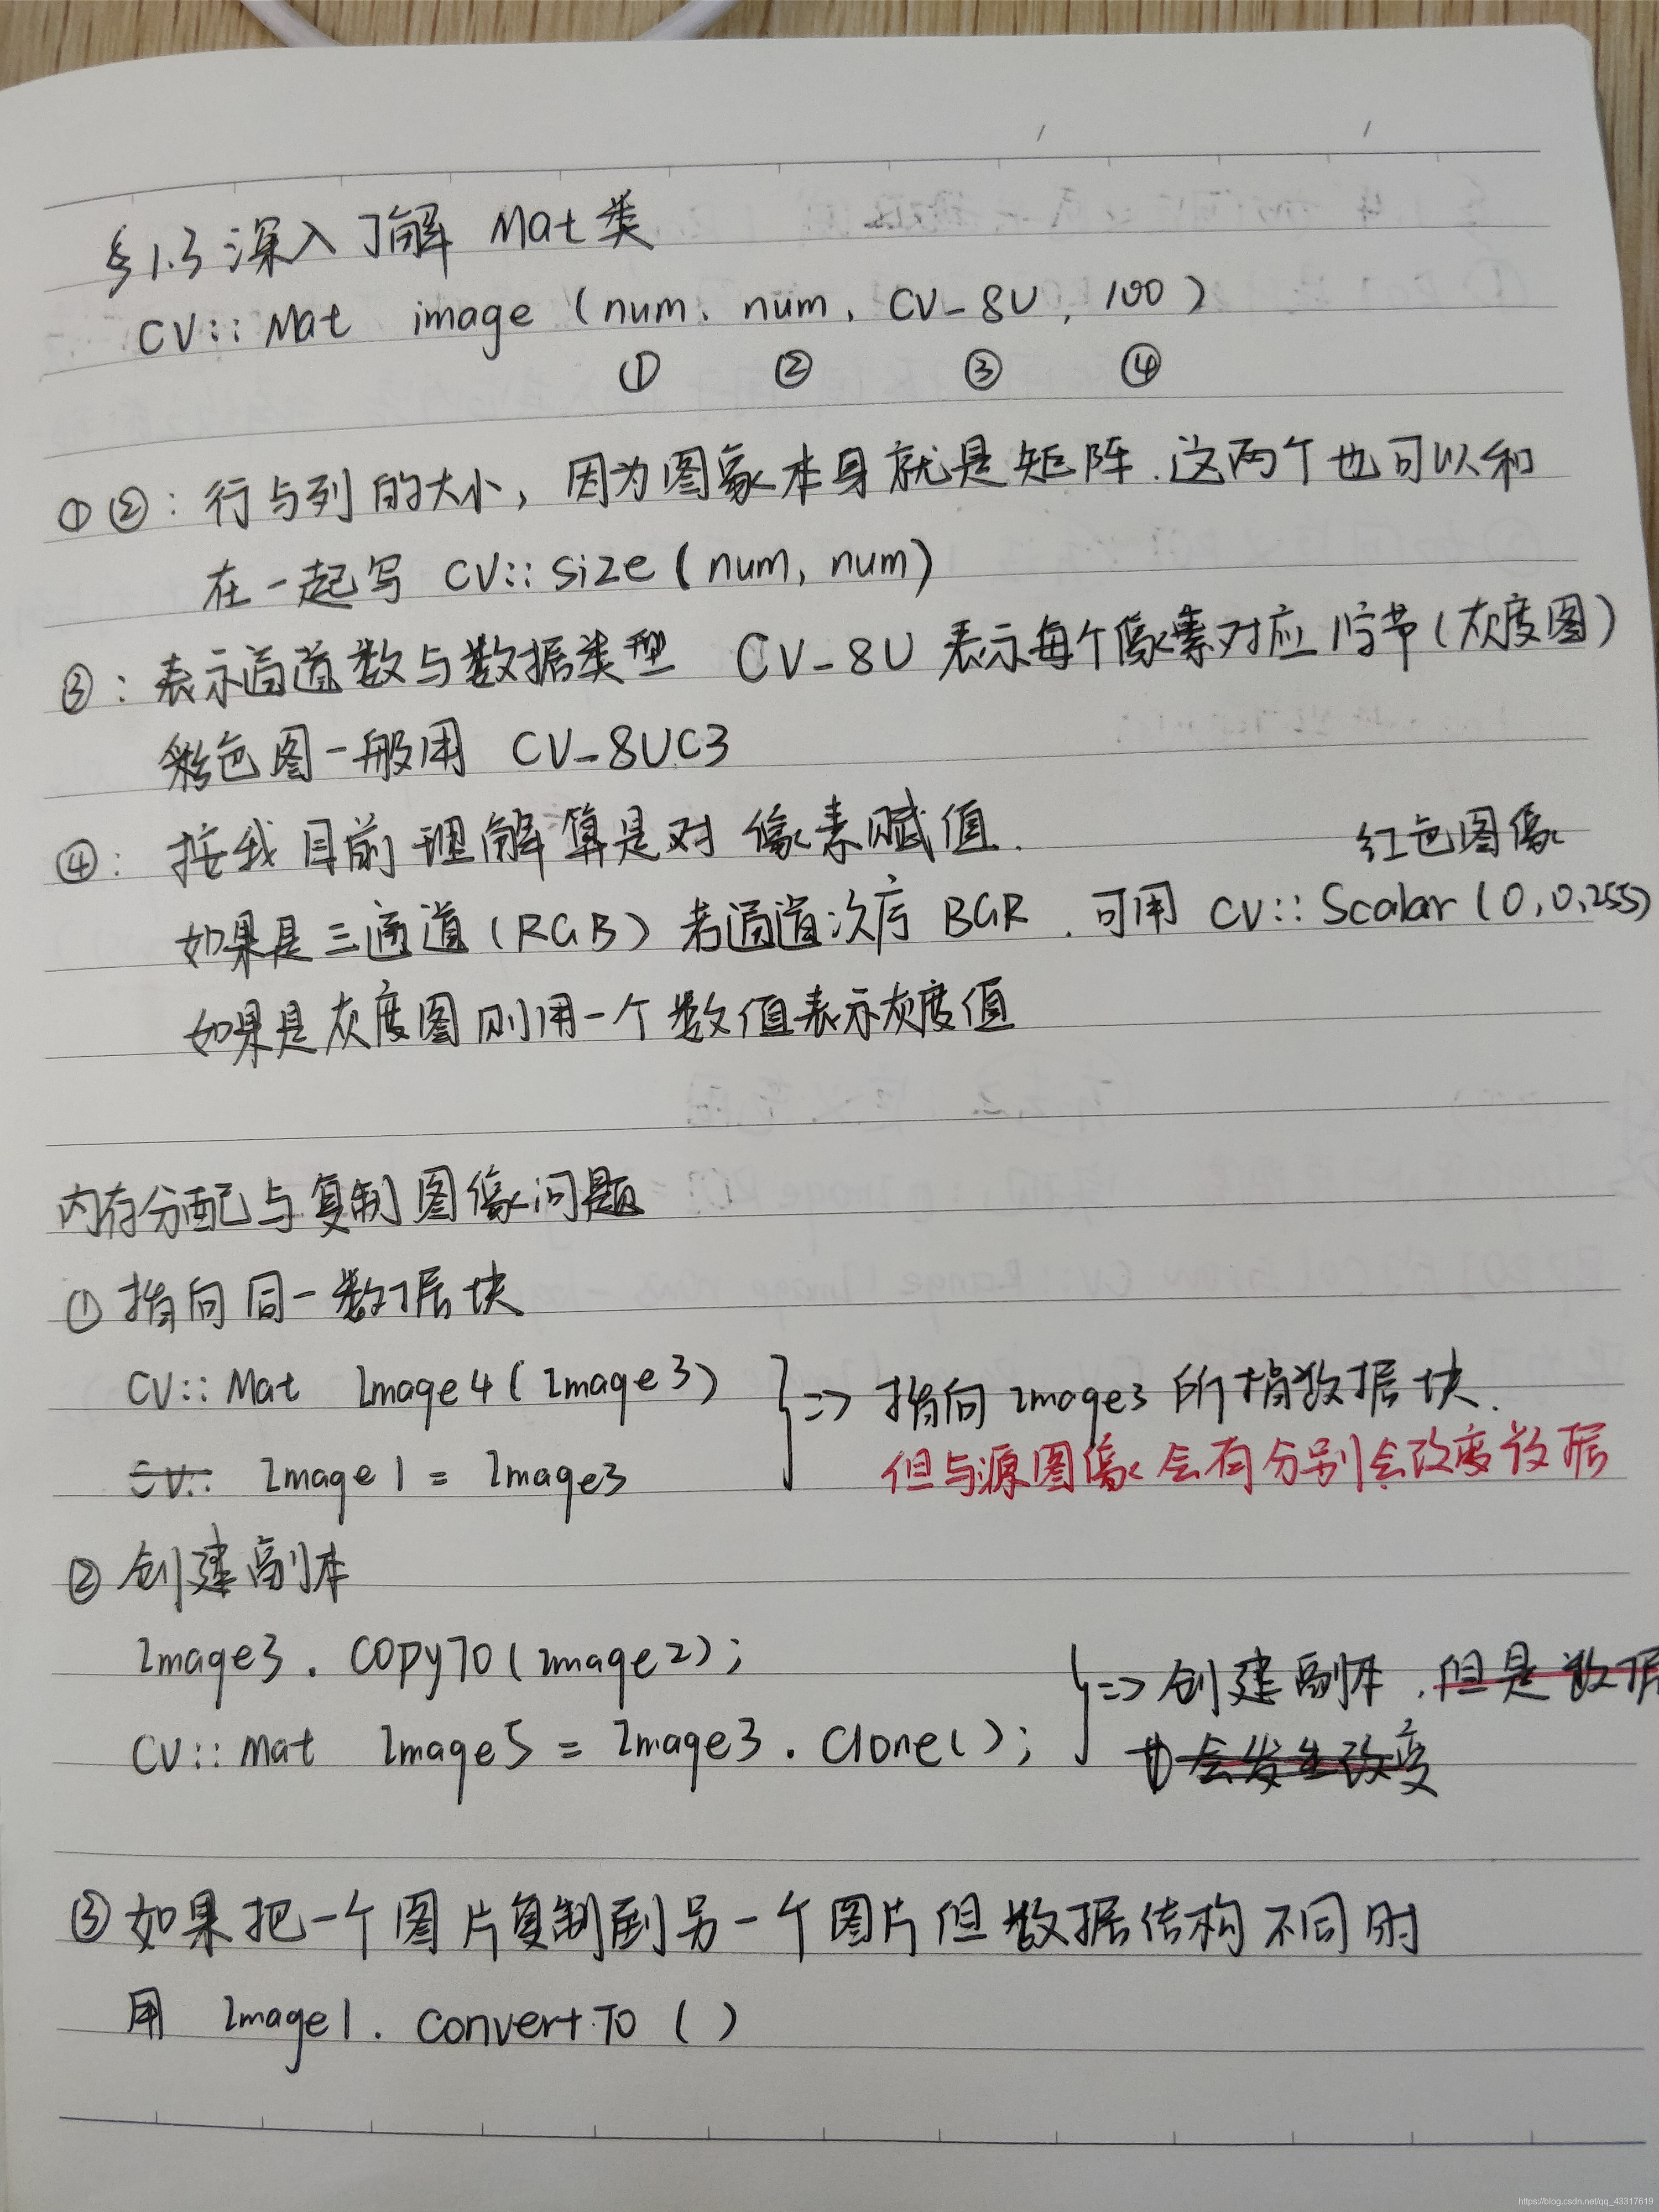 §1.3 深入了解 Mat类
CV::Mat image (num, num, CV_8U, 100)
① ② ③ ④
①②: 行与列的大小, 因为图象本身就是矩阵.这两个也可以和
在一起写 CV::size(num, num)
③: 表示通道数与数据类型 CV_8U 表示每个像素对应1字节(灰度图)
彩色图一般用 CV_8UC3
④: 按我目前理解算是对像素赋值.
红色图像
如果是三通道(RGB)若通道次序 BGR. 可用 CV::Scalar(0,0,255)
如果是灰度图则用一个数值表示灰度值
内存分配与复制图像问题
① 指向同一数据块
CV::Mat Image4(Image3)
=> 指向Image3的指数据块.
CV:: Image1 = Image3
但与源图像会有分别会改变数据
② 创建副本
Image3.CopyTo(Image2);
=> 创建副本.但是数据
CV::Mat Image5 = Image3.Clone();
会发生改变
③ 如果把一个图片复制到另一个图片但数据结构不同时
用 Image1.ConvertTo()
https://blog.csdn.net/qq_43317619